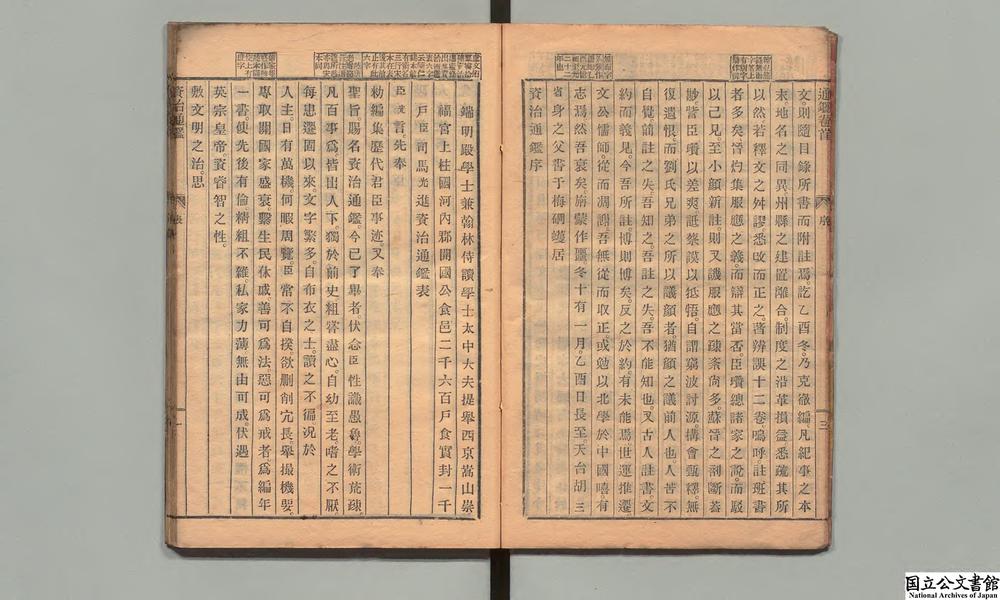 通鑑卷首 序 三
文則隨目錄所書而附註焉訖乙酉冬乃克徹編凡紀事之本
末地名之同異州縣之建置離合制度之沿革損益悉疏其所
以然若釋文之舛謬悉改而正之著辨誤十二卷嗚呼註班書
者多矣晉灼集服應之義而辯其當否臣瓚總諸家之說而駁
以己見至小顏新註則又譏服應之疎紊尚多蘇晉之剖斷蓋
尠訾臣瓚以差爽詆蔡謨以抵牾自謂窮波討源構會甄釋無
復遺恨而劉氏兄弟之所以議顏者猶顏之議前人也人苦不
自覺前註之失吾知之吾註之失吾不能知也又古人註書文
約而義見今吾所註博則博矣反之於約有未能焉世運推遷
文公儒師從而凋謝吾無從而取正或勉以北學於中國嘻有
志焉然吾衰矣旃蒙作噩冬十有一月乙酉日長至天台胡三
省身之父書于梅磵蠖居
資治通鑑序
端明殿學士兼翰林侍讀學士太中大夫提舉西京嵩山崇
福宮上柱國河內郡開國公食邑二千六百戶食實封一千
戶臣司馬光進資治通鑑表
臣光言先奉
勅編集歷代君臣事迹又奉
聖旨賜名資治通鑑今已了畢者伏念臣性識愚魯學術荒疎
凡百事爲皆出人下獨於前史粗嘗盡心自幼至老嗜之不厭
每患遷固以來文字繁多自布衣之士讀之不徧況於
人主日有萬機何暇周覽臣常不自揆欲刪削冗長舉撮機要
專取關國家盛衰繫生民休戚善可爲法惡可爲戒者爲編年
一書使先後有倫精粗不雜私家力薄無由可成伏遇
英宗皇帝資睿智之性
敷文明之治思
資治通鑑 表 一
国立公文書館
National Archives of Japan